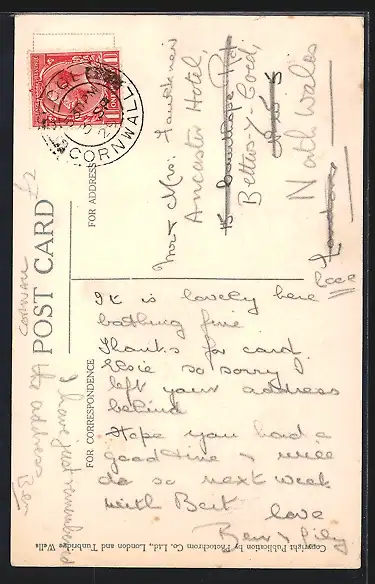 POST CARD
FOR ADDRESS
FOR CORRESPONDENCE
CORNWALL
Mr & Mrs: Faulkner
Ancaster Hotel,
Bettws y Coed,
North Wales
London
£2
CORNWALL
It is lovely here
bathing fine
Thanks for card.
Elsie so sorry
left your address
behind
Hope you had a
good time & will
do so next week
with Bert
love
Ben & Lily
I have just remembered
the address Ben
Copyright Publication by Photochrom Co. Ltd., London and Tunbridge Wells